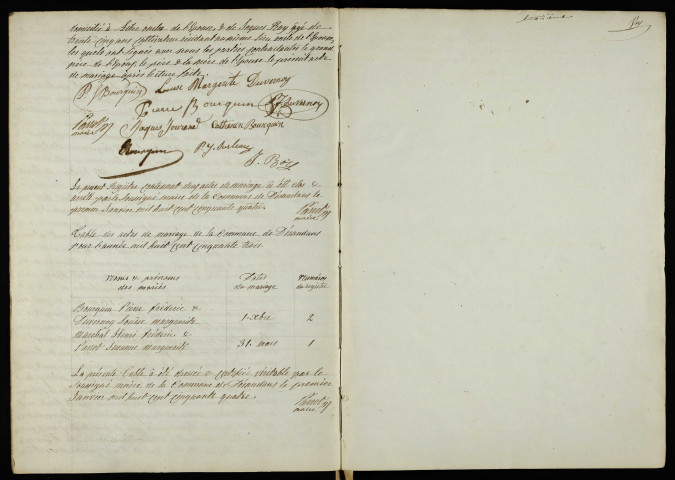 domicilié à Désandans oncle de l'Epoux, & de Jaques Roy âgé de
trente cinq ans cultivateur résidant au même lieu oncle de l'Epouse,
les quels ont signés avec nous les parties contractantes le grand
père de l'époux, le père & la mère de l'épouse le présent acte
de mariage après lecture faite.
P f Bourquin Louise Margerite Duvernoy
Pierre Bourquin Duvernoy
Parrot
maire
Jaques Catherine Bourquin
Bourquin
J. Roy
Le présent Registre contenant deux actes de mariage à été clos &
arrêté par le Soussigné maire de la Commune de Désandans le
premier Janvier mil huit cent cinquante quatre.
Parrot
maire
Table des actes de mariage de la Commune de Désandans
pour l'année mil huit cent cinquante trois.
Noms & prénoms
des mariés
Dates
du mariage
Numéros
du registre
Bourquin Pierre frédéric &
Duvernoy Louise marguerite
1 Xbre
2
Maréchal Henri frédéric &
Parrot Suzanne marguerite
31 mars
1
La présente Table à été dressée & certifiée véritable par le
Soussigné maire de la Commune de Désandans le premier
Janvier mil huit cent cinquante quatre.
Parrot
maire